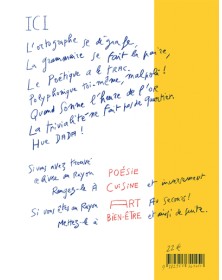 ICI
L'ortographe se dégrafe,
La grammaire se fait la paire,
Le Poétique a le trac.
Polyphonique toi-même, malpoli !
Quand sonne l'heure de l'OR
La trivialité ne fait pas de quartier.
Hue DADA !
Si vous avez trouvé
ce livre au Rayon POÉSIE
Rangez-le à CUISINE et inversement
Si vous êtes au Rayon ART Au Secours !
Mettez-le à BIEN-ÊTRE et ainsi de suite.
22 €